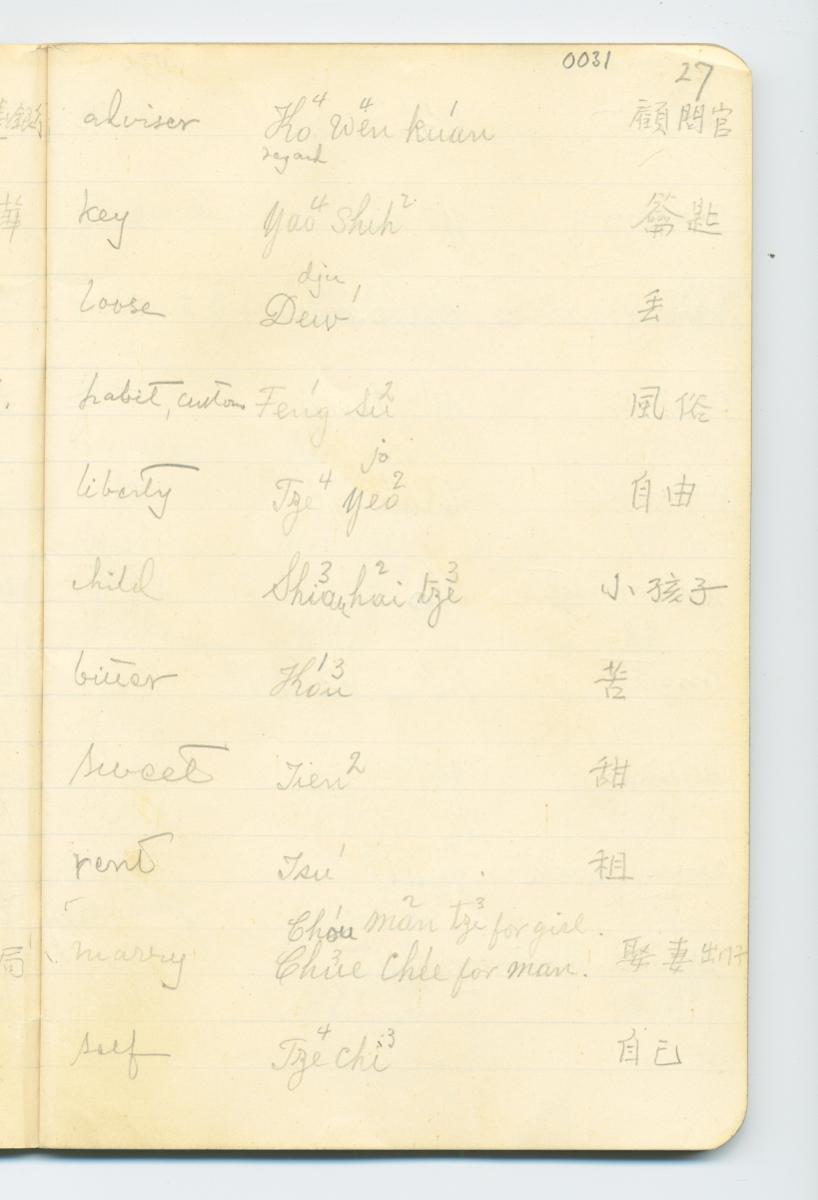 0031
27
adviser Ko⁴ Wen⁴ kuan¹ 顧問官
regard
key Yao⁴ Shih² 鑰匙
dju
loose Dew¹ 丢
habit, custom Feng¹ Su² 風俗
jo
liberty Tze⁴ yeo² 自由
child Shiau³ hai² tze³ 小孩子
bitter Kou³ 苦
sweet Tien² 甜
rent Tsu¹ 租
Chou¹ man² tze³ for girl.
marry Chüe³ Chie¹ for man. 娶妻出门子
self Tze⁴ chi³ 自己
華
局